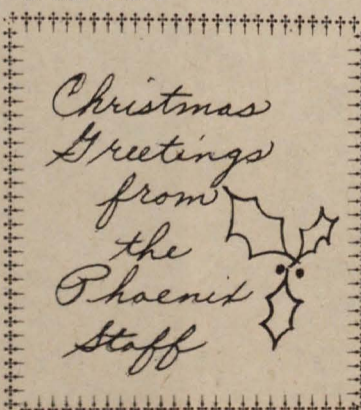 Christmas
Greetings
from
the
Phoenix
Staff